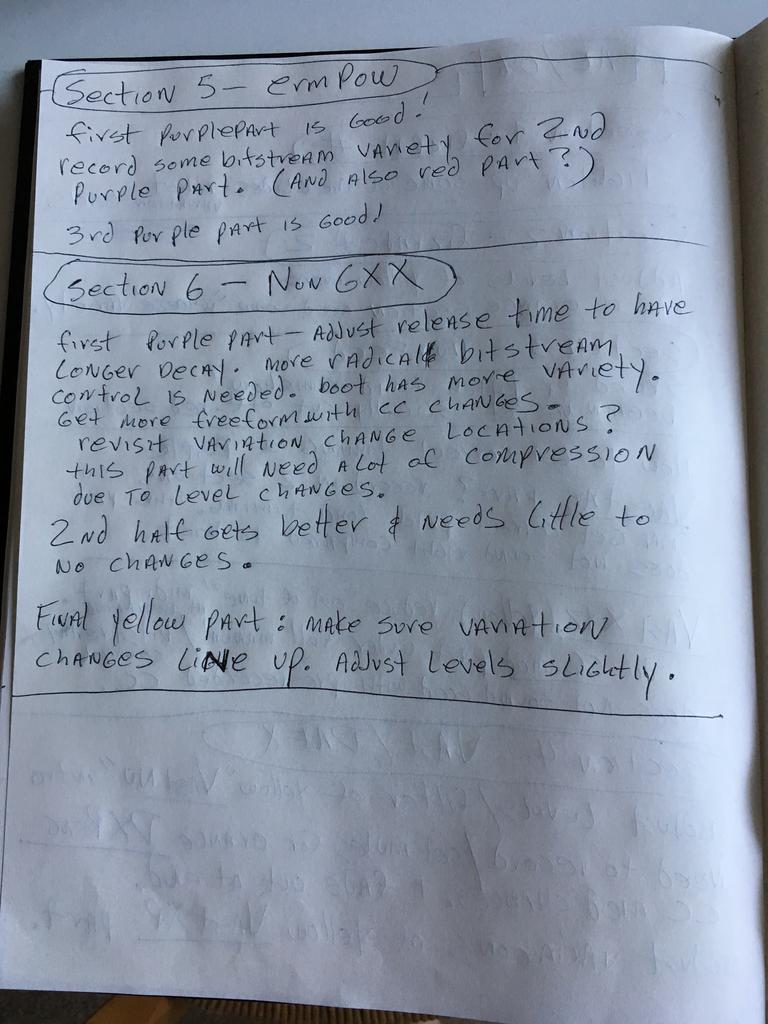 Section 5 - ermpow
first purplepart is good!
record some bitstream variety for 2nd
purple part. (And also red part?)
3rd purple part is good!
Section 6 - Nun GXX
first purple part - adjust release time to have
longer decay. more radical bitstream
control is needed. boot has more variety.
get more freeform with cc changes.
revisit variation change locations?
this part will need a lot of compression
due to level changes.
2nd half gets better & needs little to
no changes.
Final yellow part: make sure variation
changes line up. Adjust levels slightly.